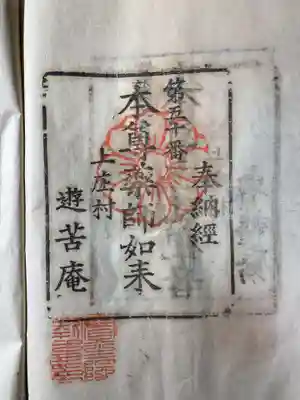 奉納經
第五十番
本尊藥師如来
上庄村
遊苦庵